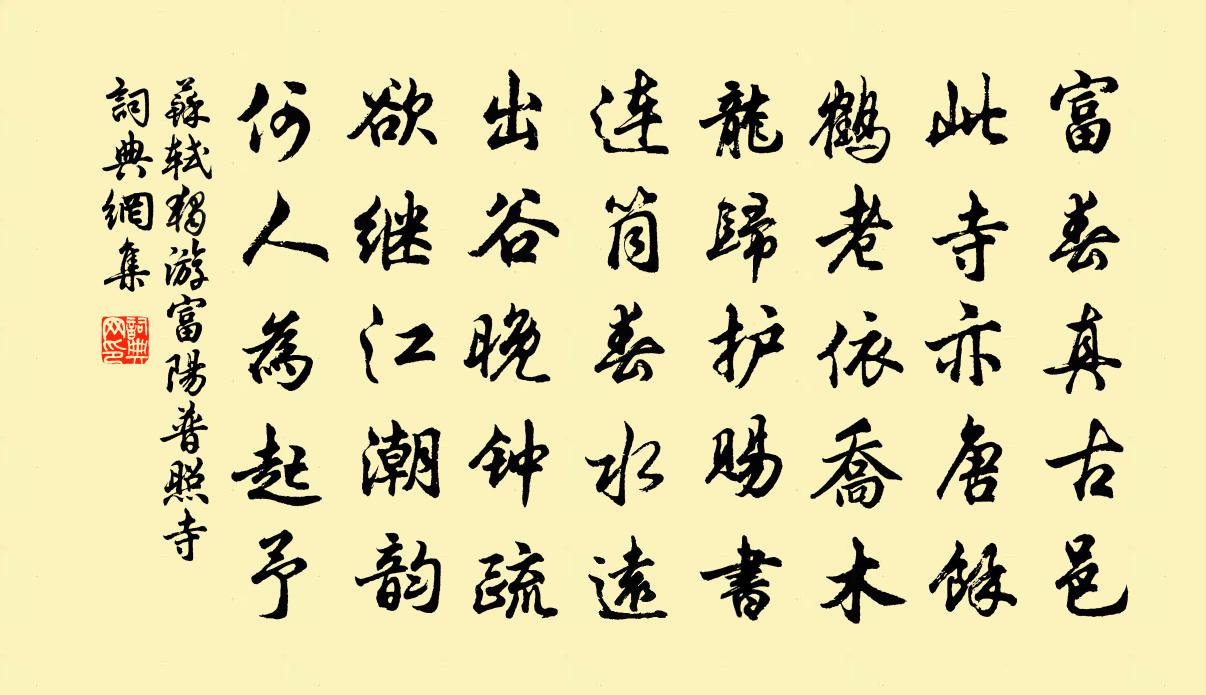 富春真古邑
此寺亦唐餘
鶴老依喬木
龍歸护賜書
連筒春水遠
出谷晚钟疏
欲继江潮韵
何人為起予
蘇軾獨游富陽普照寺
詞典網集
詞典网印